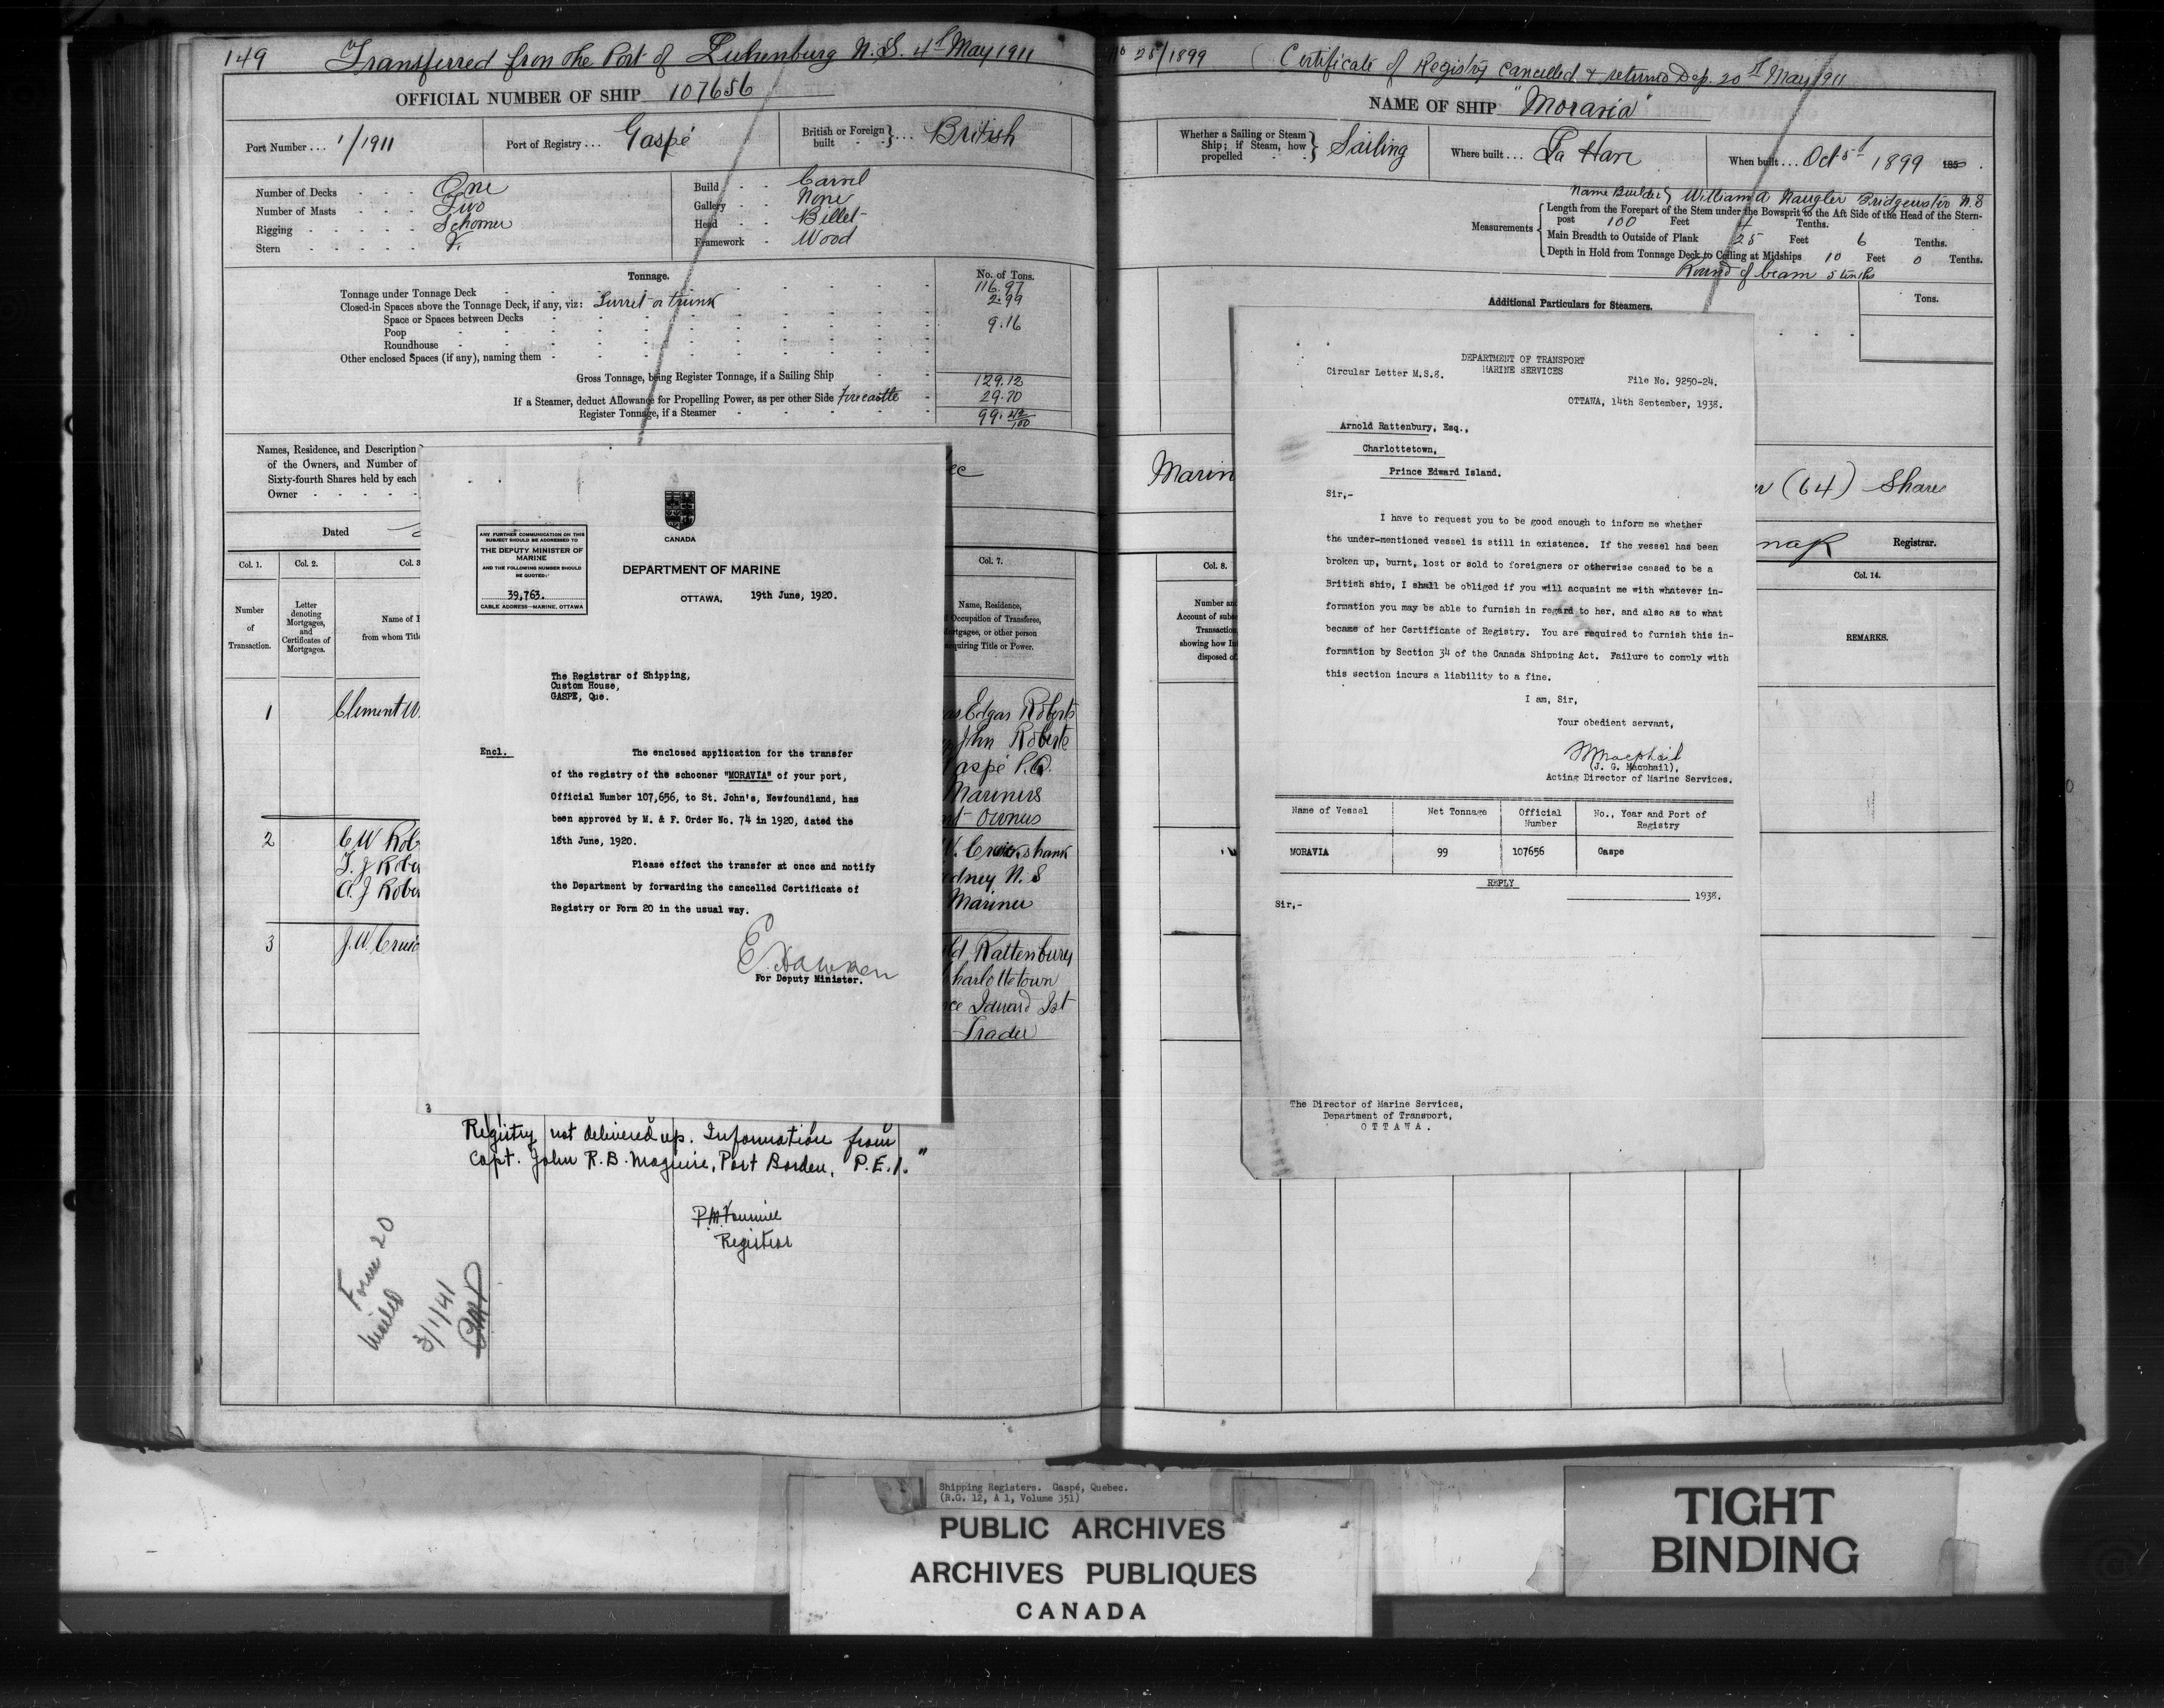 149 Transferred from the Port of Luhenburg N.S. 4th May 1911
OFFICIAL NUMBER OF SHIP 107656
Port Number . . . 1/1911
Port of Registry . . . Gaspé
British or Foreign built } . . . British
Number of Decks - - - One
Number of Masts - - - Two
Rigging - - - - Schoner
Stern - - - -
Build - - Carvel
Gallery - - None
Head - - Billet
Framework - Wood
Tonnage.
No. of Tons.
Tonnage under Tonnage Deck 116.97
Closed-in Spaces above the Tonnage Deck, if any, viz: Turret or trunk 2.99
Space or Spaces between Decks 9.16
Poop
Roundhouse
Other enclosed Spaces (if any), naming them
Gross Tonnage, being Register Tonnage, if a Sailing Ship 129.12
If a Steamer, deduct Allowance for Propelling Power, as per other Side forecastle 29.70
Register Tonnage, if a Steamer 99.42/100
Names, Residence, and Description
of the Owners, and Number of
Sixty-fourth Shares held by each
Owner - - - - -
Dated
Col. 1.
Col. 2.
Col. 3
Col. 7.
Number
of
Transaction.
Letter
denoting
Mortgages,
and
Certificates of
Mortgages.
Name of
from whom Title
Name, Residence,
Occupation of Transferee,
Mortgagee, or other person
acquiring Title or Power.
1 Clement W.
as Edgar Roberts
John Roberts
Gaspé P.Q.
Mariners
nt Owners
2 C W Rob
T. J Rober
A. J Rober
W. Cruickshank
Sydney N. S
Mariner
3 J. W. Cruic
ld Rattenbury
Charlottetown
nce Edward Isl
Trader
CANADA
ANY FURTHER COMMUNICATION ON THIS
SUBJECT SHOULD BE ADDRESSED TO
THE DEPUTY MINISTER OF
MARINE
AND THE FOLLOWING NUMBER SHOULD
BE QUOTED:
39,763.
CABLE ADDRESS—MARINE, OTTAWA
DEPARTMENT OF MARINE
OTTAWA, 19th June, 1920.
The Registrar of Shipping,
Custom House,
GASPE, Que.
Encl.
The enclosed application for the transfer
of the registry of the schooner "MORAVIA" of your port,
Official Number 107,656, to St. John's, Newfoundland, has
been approved by M. & F. Order No. 74 in 1920, dated the
18th June, 1920.
Please effect the transfer at once and notify
the Department by forwarding the cancelled Certificate of
Registry or Form 20 in the usual way.
E. Hawken
For Deputy Minister.
3
Registry not delivered up. Information from
Capt. John R.B. Maguire, Port Borden, P.E.I."
Registrar
Form 20
mailed
3/1/41
No 25/1899 (Certificate of Registry cancelled & returned Dep. 20th May 1911
NAME OF SHIP "Moravia"
Whether a Sailing or Steam
Ship; if Steam, how
propelled } Sailing
Where built . . . La Have
When built . . . Oct 5th 1899 185
Name Builder } William A Naugler Bridgewater N.S
Measurements
Length from the Forepart of the Stem under the Bowsprit to the Aft Side of the Head of the Stern-
post 100 Feet Tenths.
Main Breadth to Outside of Plank 25 Feet 6 Tenths.
Depth in Hold from Tonnage Deck to Ceiling at Midships 10 Feet 0 Tenths.
Round of beam 5 tenths
Additional Particulars for Steamers.
Tons.
Marin
(64) Share
Registrar.
Col. 8.
Col. 14.
Number an
Account of subs
Transaction
showing how In
disposed of
REMARKS.
DEPARTMENT OF TRANSPORT
MARINE SERVICES
Circular Letter M.S.8.
File No. 9250-24.
OTTAWA, 14th September, 1938.
Arnold Rattenbury, Esq.,
Charlottetown,
Prince Edward Island.
Sir,-
I have to request you to be good enough to inform me whether
the under-mentioned vessel is still in existence. If the vessel has been
broken up, burnt, lost or sold to foreigners or otherwise ceased to be a
British ship, I shall be obliged if you will acquaint me with whatever in-
formation you may be able to furnish in regard to her, and also as to what
became of her Certificate of Registry. You are required to furnish this in-
formation by Section 34 of the Canada Shipping Act. Failure to comply with
this section incurs a liability to a fine.
I am, Sir,
Your obedient servant,
JMacphail
(J. G. Macphail),
Acting Director of Marine Services.
Name of Vessel Net Tonnage Official Number No., Year and Port of Registry
MORAVIA 99 107656 Gaspe
REPLY
1938.
Sir,-
The Director of Marine Services,
Department of Transport,
OTTAWA.
Shipping Registers. Gaspé, Quebec.
(R.G. 12, A 1, Volume 351)
PUBLIC ARCHIVES
ARCHIVES PUBLIQUES
CANADA
TIGHT
BINDING